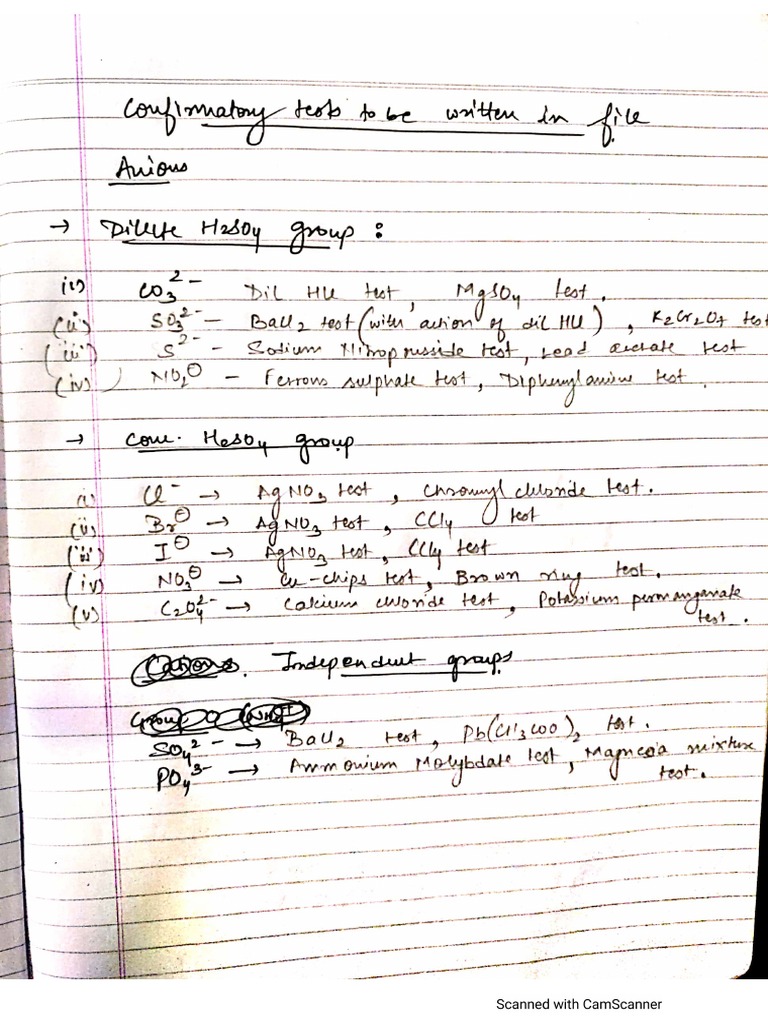 Confirmatory tests to be written in file
Anions
→ Dilute H2SO4 group :
(i) CO3 2- — Dil HCl test, MgSO4 test.
(ii) SO3 2- — BaCl2 test (with action of dil HCl), K2Cr2O7 test
(iii) S 2- — Sodium Nitroprusside test, Lead acetate test
(iv) NO2 ⊖ — Ferrous sulphate test, Diphenylamine test.
→ Conc. H2SO4 group
(i) Cl - → AgNO3 test, Chromyl chloride test.
(ii) Br ⊖ → AgNO3 test, CCl4 test
(iii) I ⊖ → AgNO3 test, CCl4 test
(iv) NO3 ⊖ → Cu-chips test, Brown ring test.
(v) C2O4 2- → Calcium chloride test, Potassium permanganate test.
Independent groups
SO4 2- → BaCl2 test, Pb(CH3COO)2 test.
PO4 3- → Ammonium Molybdate test, Magnesia mixture test.
Scanned with CamScanner